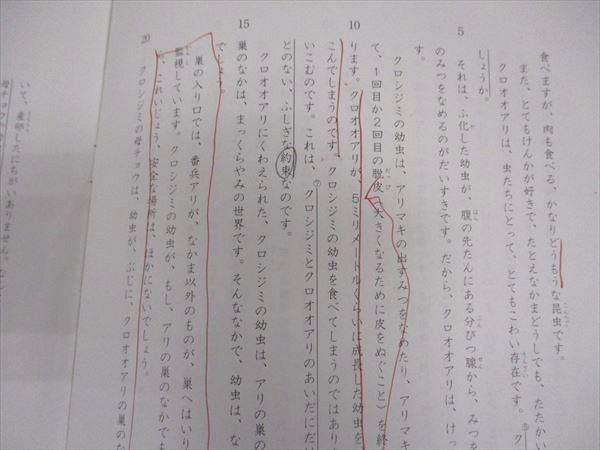 5
10
15
20
食べますが、肉も食べる、かなりどうもうな昆虫です。
また、とてもけんかが好きで、たとえなかまどうしでも、たたかい
クロオオアリは、虫たちにとって、とてもこわい存在です。
しょうか。
それは、ふ化した幼虫が、腹の先たんにある分ぴつ腺から、みつを
のみつをなめるのがだいすきです。だから、クロオオアリは、けっ
す。
クロシジミの幼虫は、アリマキの出すみつをなめたり、アリマキ
て、1回目か2回目の脱皮(大きくなるために皮をぬぐこと)を終
ります。クロオオアリが、5ミリメートルくらいに成長した幼虫を
こんでしまうのです。クロシジミの幼虫を食べてしまうのではあり
いこむのです。これは、クロシジミとクロオオアリのあいだにだけ
とのない、ふしぎな約束なのです。
クロオオアリにくわえられた、クロシジミの幼虫は、アリの巣の
巣のなかは、まっくらやみの世界です。そんななかで、幼虫は、な
でしょう。
巣の入り口では、番兵アリが、なかま以外のものが、巣へはいり
監視しています。クロシジミの幼虫が、もし、アリの巣のなかでも
これいじょう、安全な場所は、ほかにないでしょう。
クロシジミの母チョウは、幼虫が、ぶじに、クロオオアリの巣のな
いて、産卵したにちがいありません。
母チョウ